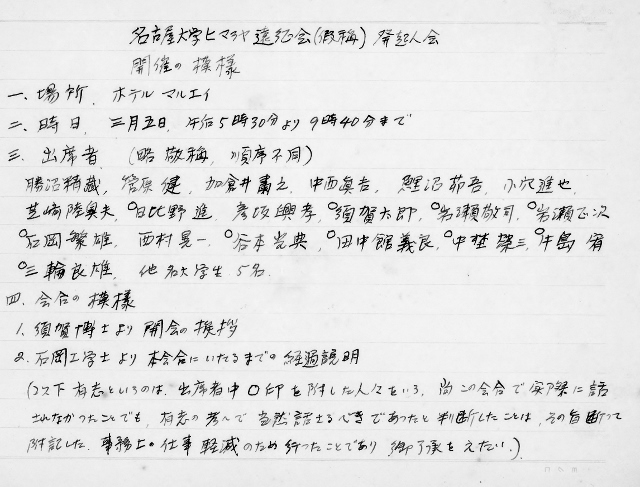 名古屋大学ヒマラヤ遠征会(仮称) 発起人会
開催の模様
一、場所、ホテル マルエイ
二、時日、三月五日、午后5時30分より9時40分まで
三、出席者 (略敬称、順序不同)
勝沼精蔵、菅原健、加倉井粛之、中西真吉、鯉沼茆吾、小穴進也
芝崎陸奥夫、○日比野進、彦坂興孝、○須賀太郎、○岩瀬敬司、○岩瀬正次
○石岡繁雄、西村晃一、○谷本光典、○田中館義良、○中埜築三、○牛島宥
○三輪良雄、他名大学生5名
四、会合の模様
1. 須賀博士より開会の挨拶
2. 石岡工学士より本会合にいたるまでの経過説明
(以下有志というのは、出席者中○印を附した人々をいう、尚この会合で実際に話
されなかったことでも、有志の考へで当然話すべきであったと判断したことは、その旨断って
附記した、事務上の仕事軽減のため行ったことであり御了承をえたい。)